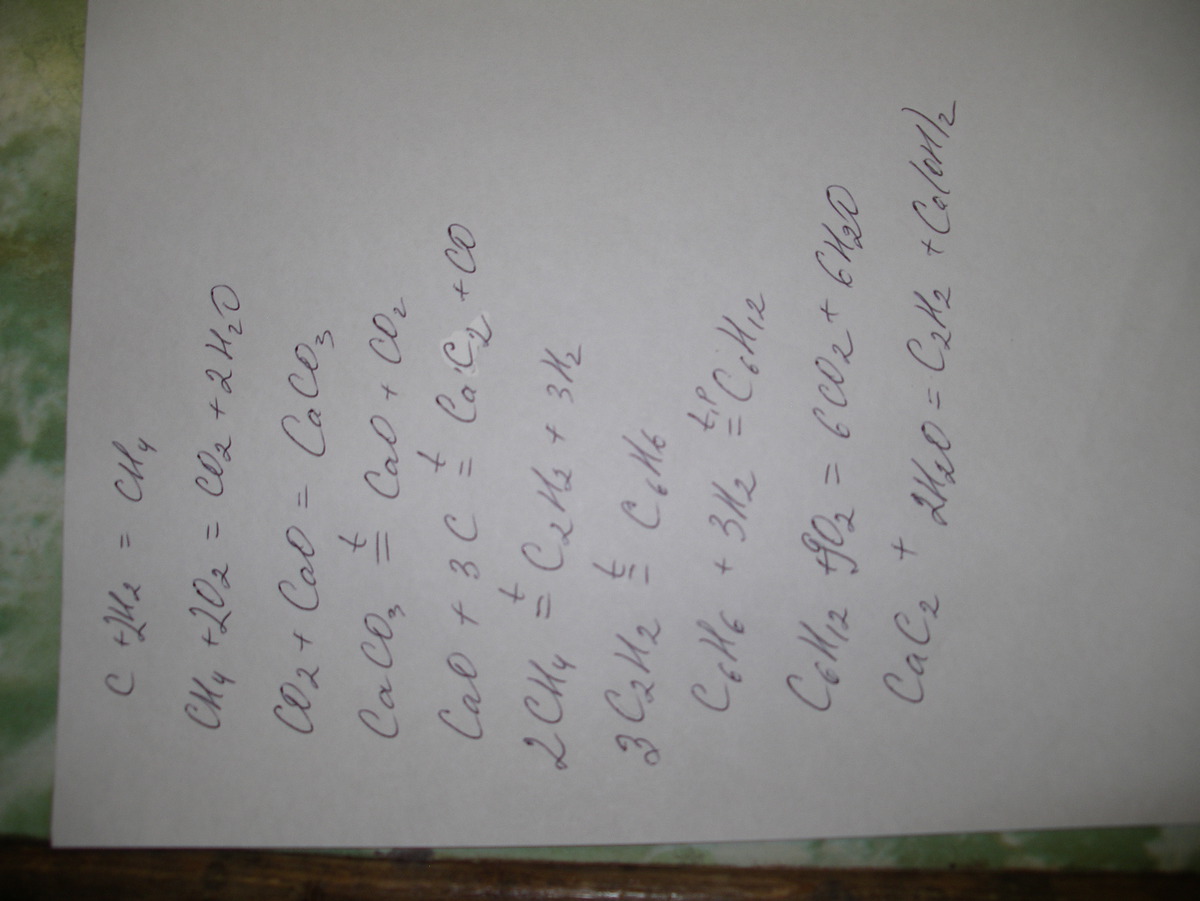 C + 2H₂ = CH₄
CH₄ + 2O₂ = CO₂ + 2H₂O
CO₂ + CaO = CaCO₃
CaCO₃ =ᵗ CaO + CO₂
CaO + 3C =ᵗ CaC₂ + CO
2CH₄ =ᵗ C₂H₂ + 3H₂
3C₂H₂ =ᵗ C₆H₆
C₆H₆ + 3H₂ =ᵗ,ᵖ C₆H₁₂
C₆H₁₂ + 9O₂ = 6CO₂ + 6H₂O
CaC₂ + 2H₂O = C₂H₂ + Ca(OH)₂